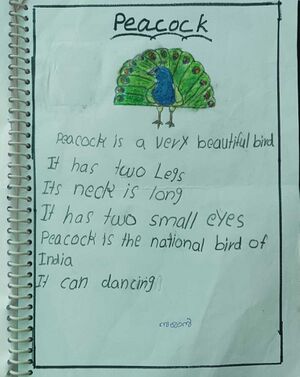 Peacock
Peacock is a very beautiful bird
It has two Legs
Its neck is long
It has two small eyes
Peacock is the national bird of
India
It can dancing